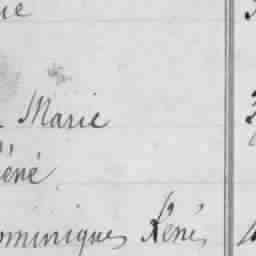 ue
Marie
éné
ominiques René,